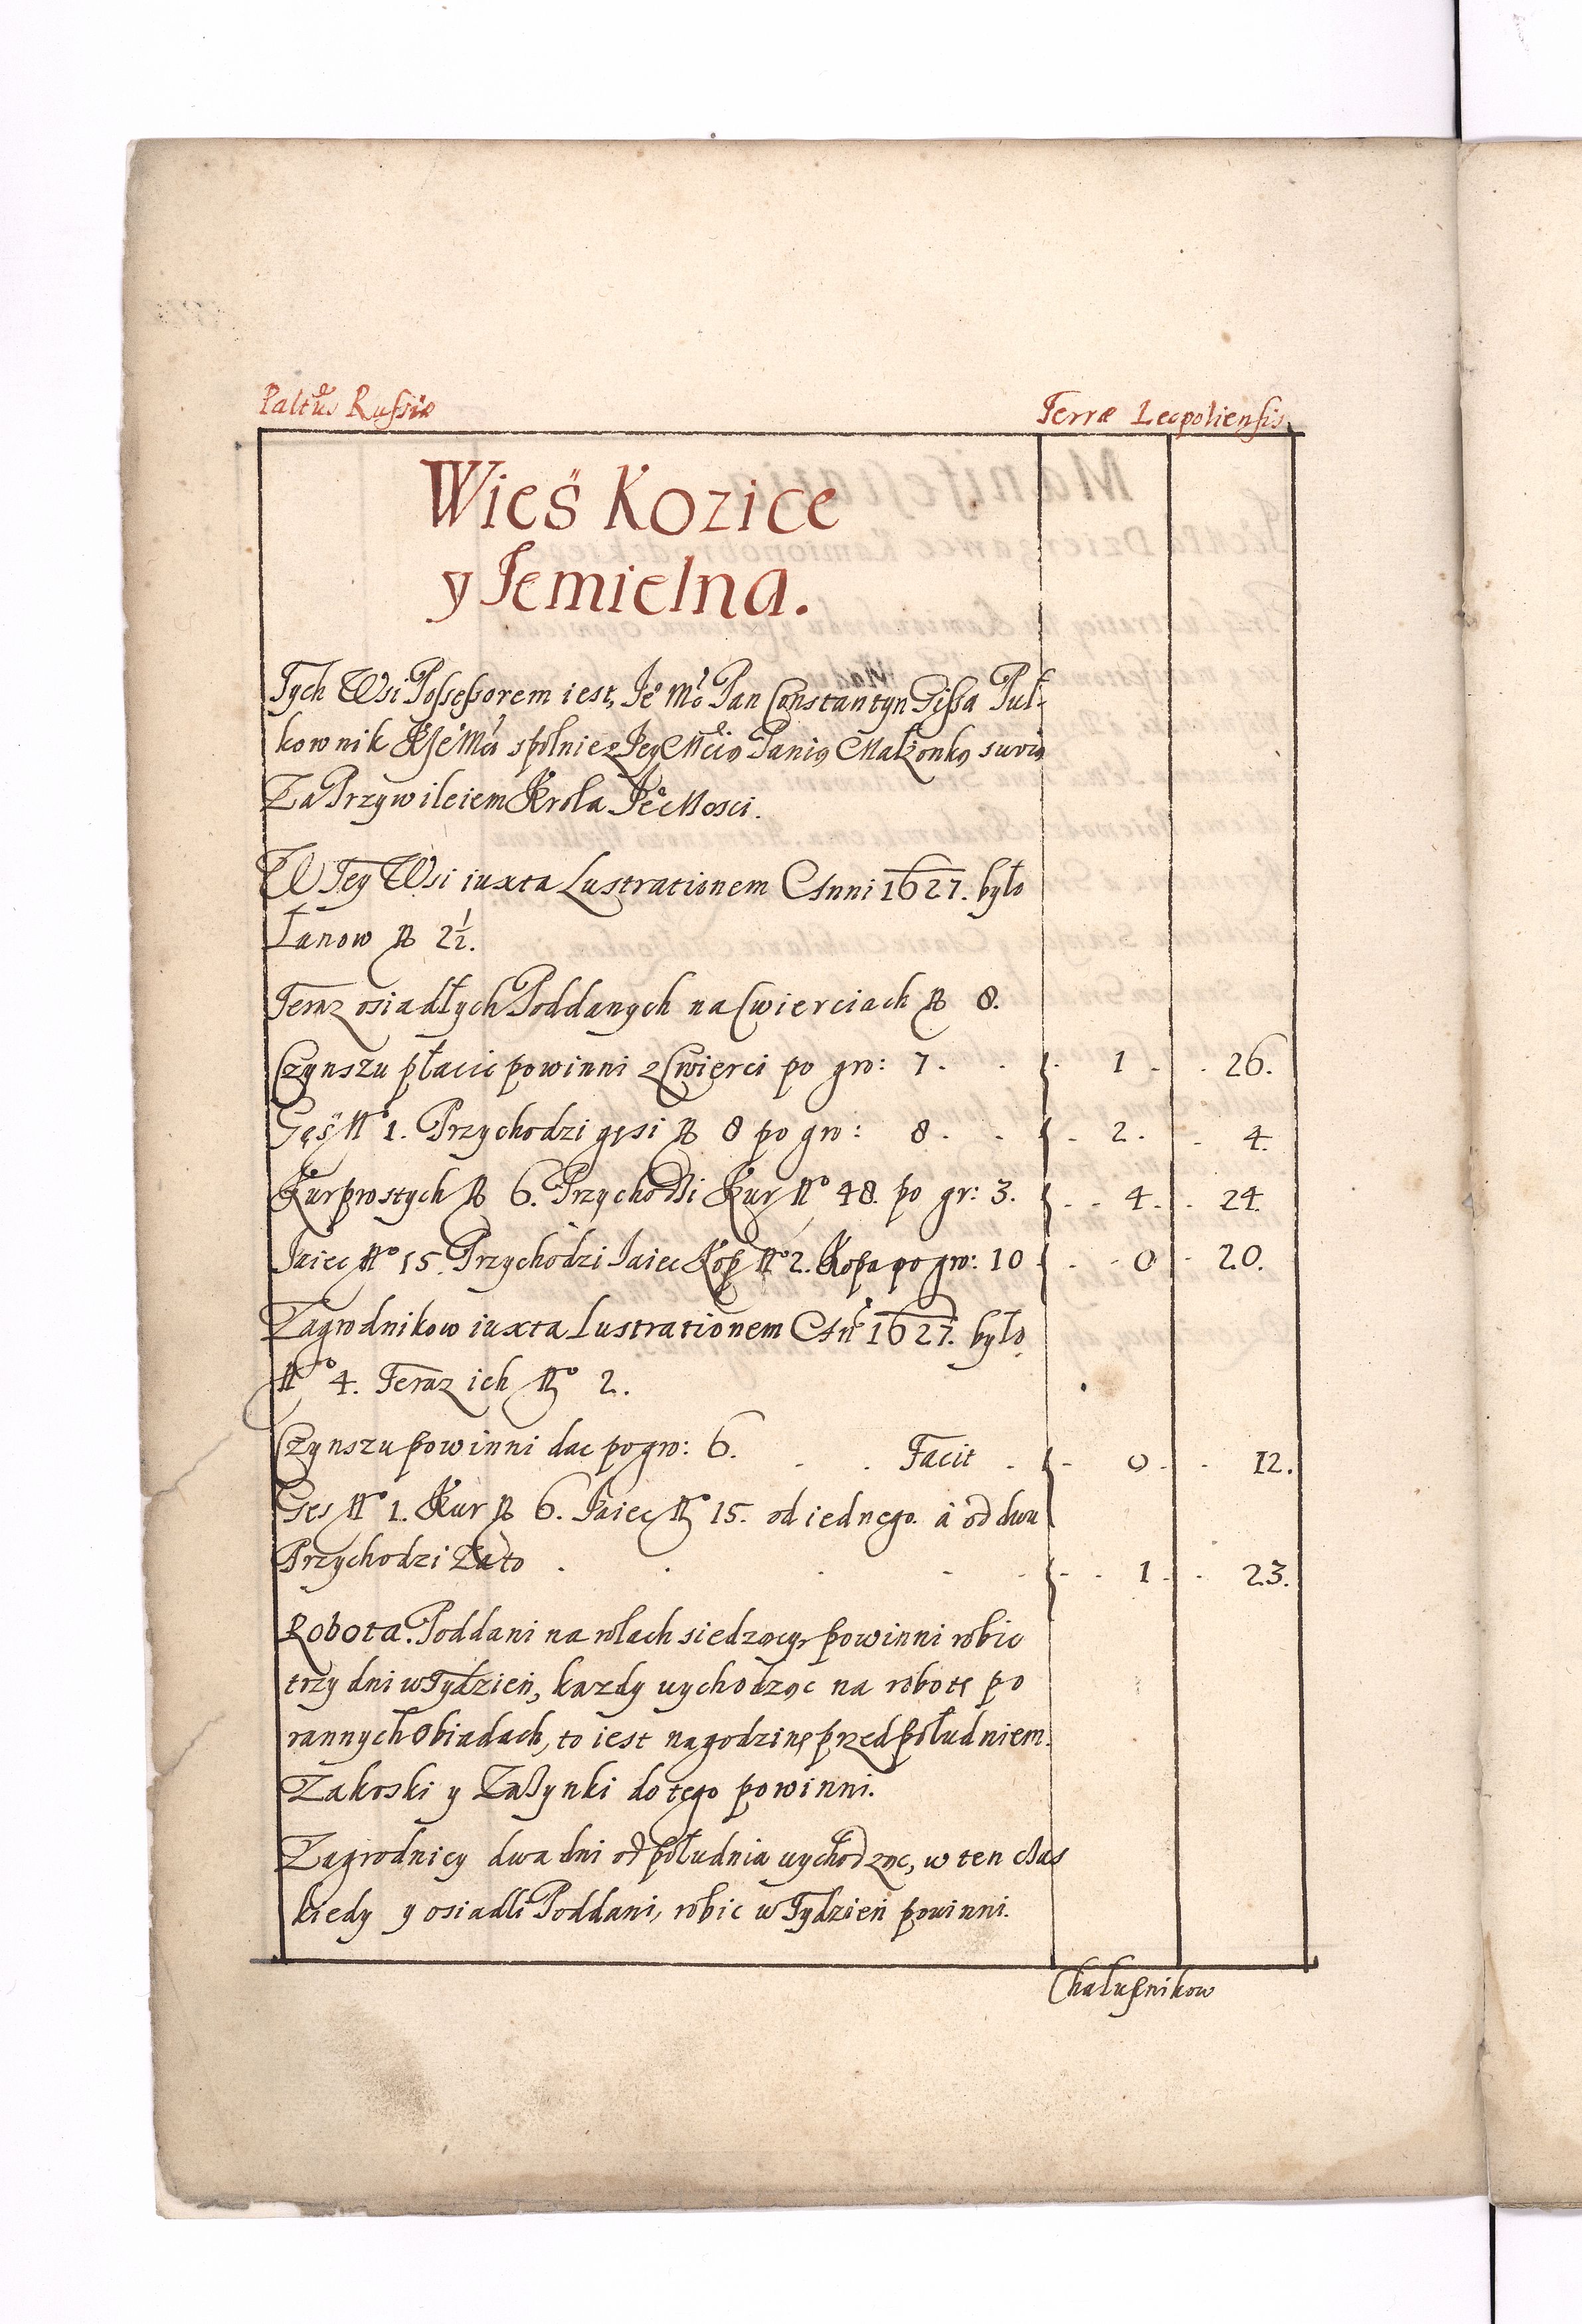 Paltus Russiæ Terræ Leopoliensis
Wieś Kozice
y Jemielna.
Tych Wsi Possessorem iest, Je° Mć Pan Constantyn Gissa Puł-
kownik KJe°Mći spolnie z Jey Mćią Panią Małżonką swoią
Za Przywileiem Krola Je° Mosci.
W Tey Wsi iuxta Lustrationem Anni 1627. było
Łanow N° 2½.
Teraz osiadłych Poddanych na Cwierciach N° 8.
Czynszu płacić powinni z Cwierci po gro: 7. 1. 26.
Gęś N° 1. Przychodzi gęsi N° 8 po gro: 8. 2. 4.
Kur prostych N° 6. Przychodzi Kur N° 48. po gr: 3. 4. 24.
Jaiec N° 15. Przychodzi Jaiec Kop N° 2. Kopa po gro: 10 0 20.
Zagrodnikow iuxta Lustrationem Ani 1627. było
N° 4. Teraz ich N° 2.
Czynszu powinni dac po gro: 6. Facit 0. 12.
Ges N° 1. Kur N° 6. Jaiec N° 15. od iednego. á od dwu
Przychodzi Za to 1. 23.
Robota. Poddani na rolach siedzący, powinni robic
trzy dni w Tydzień, kazdy wychodząc na robotę po
rannych Obiadach, to iest na godzinę przed południem.
Zakoski y Zażynki do tego powinni.
Zagrodnicy dwa dni od południa wychodząc, w ten czas
kiedy y osiadli Poddani, robic w Tydzień powinni.
Chałupnikow